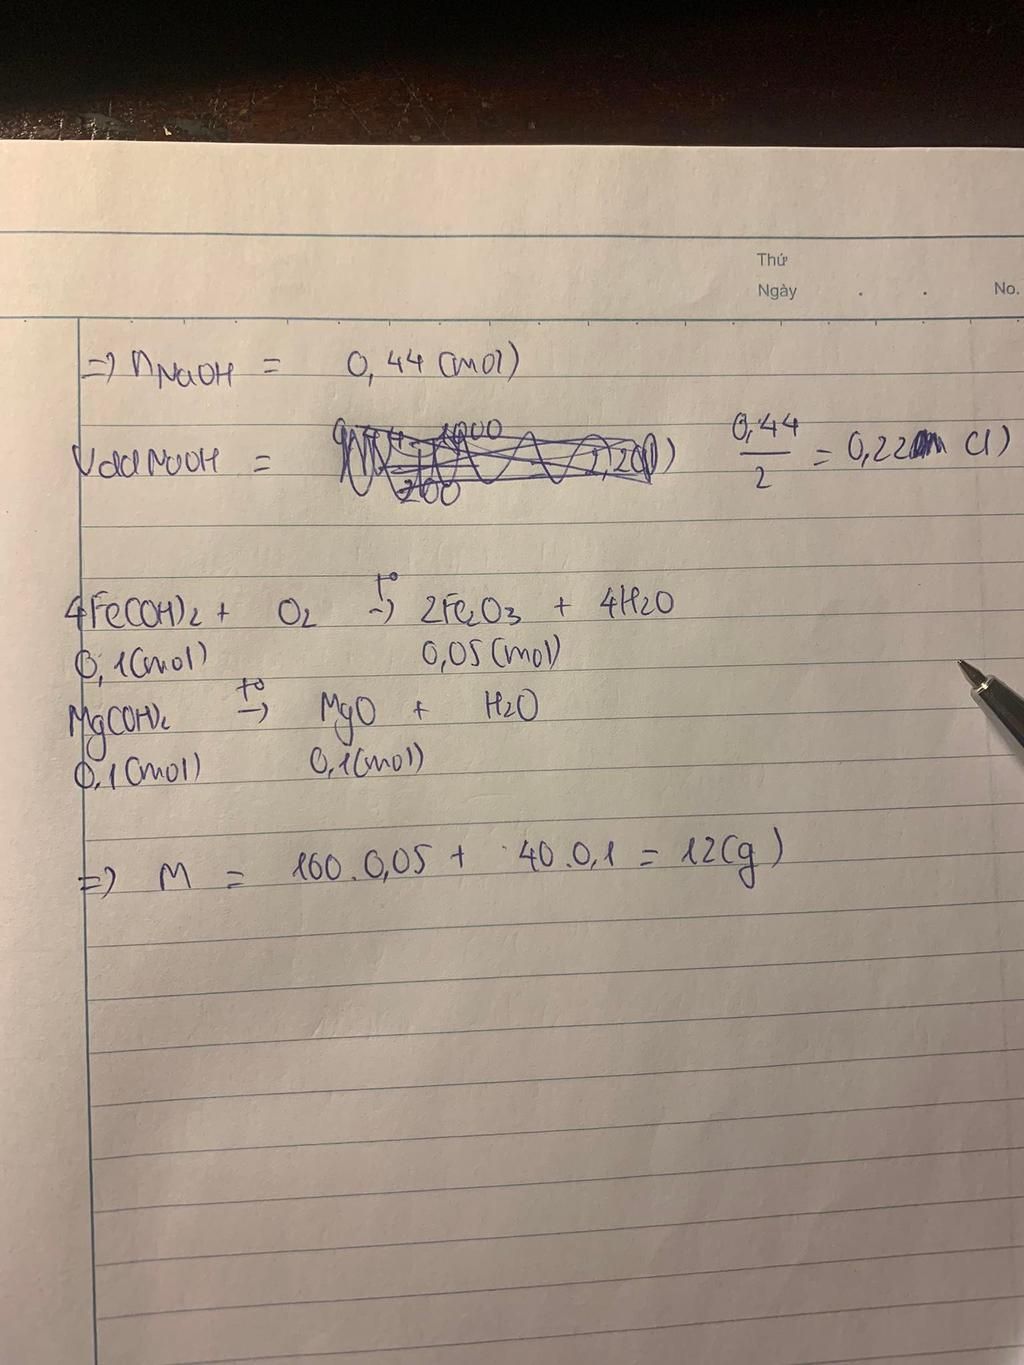 Thứ
Ngày . . No.
=) nNaOH = 0,44 (mol)
VddNaOH = 0,44/2 = 0,22 (l)
4Fe(OH)2 + O2 t° → 2Fe2O3 + 4H2O
0,1(mol) 0,05(mol)
Mg(OH)2 t° → MgO + H2O
0,1(mol) 0,1(mol)
=) M = 160.0,05 + 40.0,1 = 12(g)